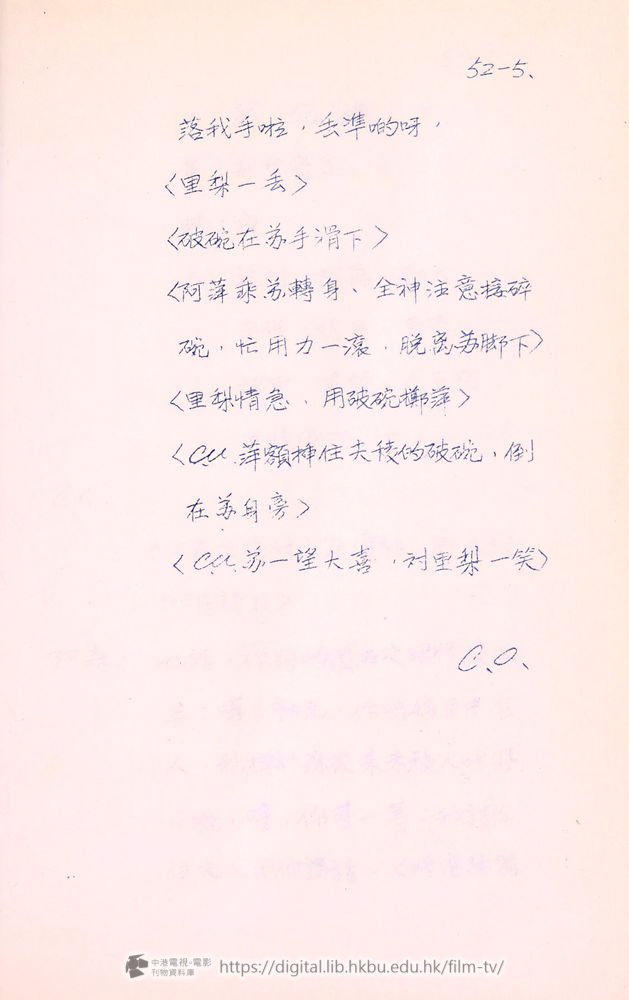 52-5、
落我手啦，丢準啲呀，
〈里梨一丢〉
〈破碗在苏手滑下〉
〈阿萍乘苏轉身、全神注意接碎
碗，忙用力一滾，脱离苏脚下〉
〈里梨情急、用破碗擲萍〉
〈C.U.萍額揷住尖稜的破碗，倒
在苏身旁〉
〈C.U.苏一望大喜，对里梨一笑〉
C.O.
中港電視·電影
刊物資料庫
https://digital.lib.hkbu.edu.hk/film-tv/